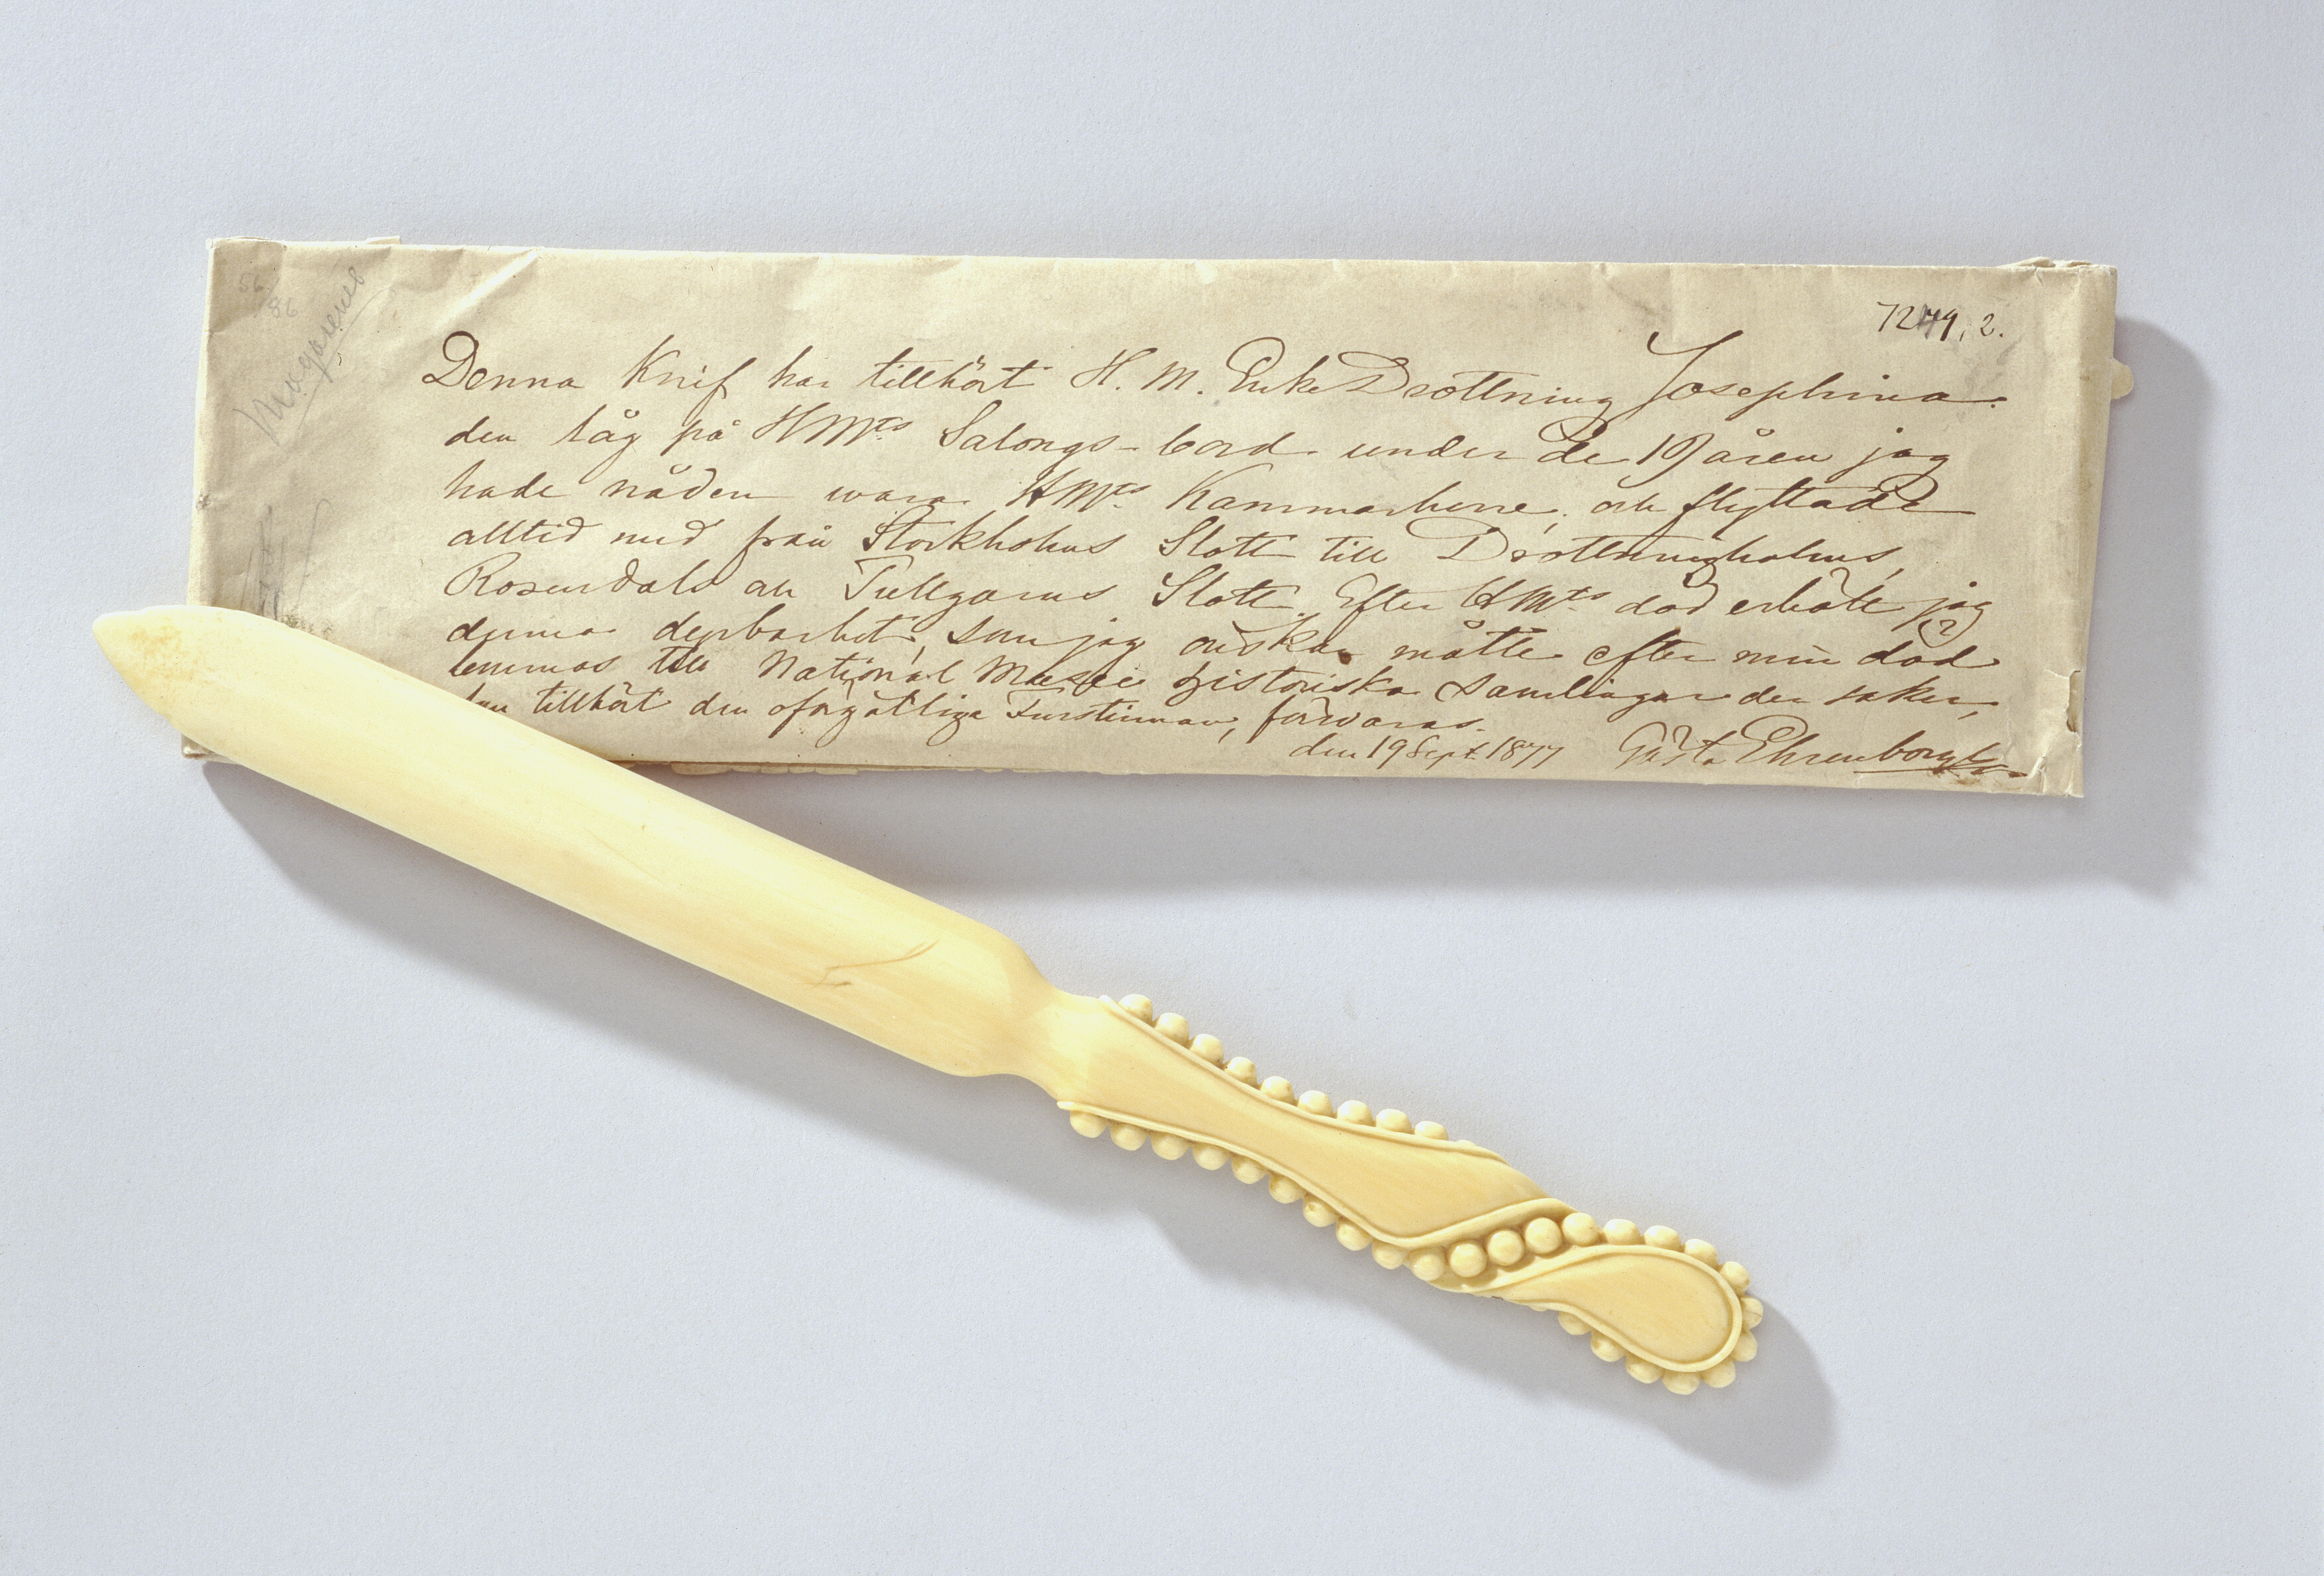 7244, 2.
Magasenet
56
86
Denna Knif har tillhört H. M. EnkeDrottning Josephina.
den låg på HMts Salongs-bord under de 19 åren jag
hade nåden wara HMts Kammarherre, och flyttade
alltid med från Stockholms Slott till Drottningholms,
Rosendals och Tullgarns Slott. Efter HMts död erhölt jag
denna dyrbarhet, som jag önskar måtte efter min död
lemnas till National Musei historiska Samlingar der saker,
tillhört den oförgätliga Furstinnan, förwaras.
den 19 Sept 1877 Gösta Ehrenborg